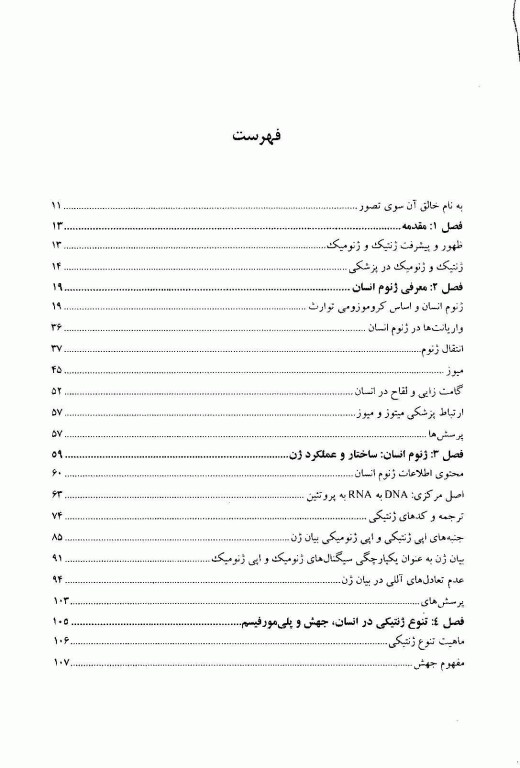 فهرست
به نام خالق آن سوی تصور ۱۱
فصل ۱: مقدمه ۱۳
ظهور و پیشرفت ژنتیک و ژنومیک ۱۳
ژنتیک و ژنومیک در پزشکی ۱۴
فصل ۲: معرفی ژنوم انسان ۱۹
ژنوم انسان و اساس کروموزومی توارث ۱۹
واریانت‌ها در ژنوم انسان ۳۶
انتقال ژنوم ۳۷
میوز ۴۵
گامت زایی و لقاح در انسان ۵۲
ارتباط پزشکی میتوز و میوز ۵۷
پرسش‌ها ۵۷
فصل ۳: ژنوم انسان: ساختار و عملکرد ژن ۵۹
محتوی اطلاعات ژنوم انسان ۶۰
اصل مرکزی: DNA به RNA به پروتئین ۶۳
ترجمه و کدهای ژنتیکی ۷۴
جنبه‌های اپی ژنتیکی و اپی ژنومیکی بیان ژن ۸۵
بیان ژن به عنوان یکپارچگی سیگنال‌های ژنومیک و اپی ژنومیک ۹۱
عدم تعادل‌های آللی در بیان ژن ۹۴
پرسش‌های ۱۰۳
فصل ٤: تنوع ژنتیکی در انسان، جهش و پلی‌مورفیسم ۱۰۵
ماهیت تنوع ژنتیکی ۱۰۶
مفهوم جهش ۱۰۷